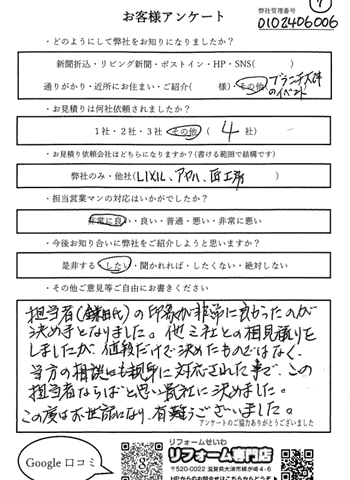 7
お客様アンケート
弊社管理番号
0102406006
・どのようにして弊社をお知りになりましたか？
新聞折込・リビング新聞・ポストイン・HP・SNS( )
通りがかり・近所にお住まい・ご紹介( 様)・その他 ブランチ大津のイベント
・お見積りは何社依頼されましたか？
1社・2社・3社 その他 ( 4 社)
・お見積り依頼会社はどちらになりますか？(書ける範囲で結構です)
弊社のみ・他社(LIXIL、アヤハ、匠工房 )
・担当営業マンの対応はいかがでしたか？
非常に良い・良い・普通・悪い・非常に悪い
・今後お知り合いに弊社をご紹介しようと思いますか？
是非する・したい・聞かれれば・したくない・絶対しない
・その他ご意見等ご自由にお書きください
担当者(鎌田氏)の印象が非常に良かったのが
決め手となりました。他三社との相見積りを
しましたが、値段だけで決めたものではなく、
当方の相談にも親身に対応された事で、この
担当者ならばと思い貴社に決めました。
この度はお世話になり、有難うございました。
アンケートのご協力ありがとうございました
Google 口コミ
リフォームせいわ
リフォーム専門店
〒520-0022 滋賀県大津市柳が崎4-6
HPからのお問合せはこちらからどうぞ